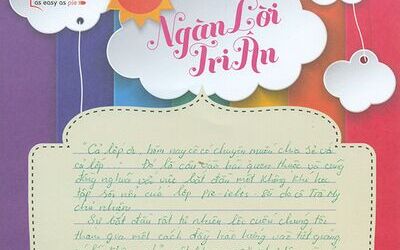 as easy as pie
Ngàn Lời
Tri Ân
"Cả lớp ơi, hôm nay cô có chuyện muốn chia sẻ với
cả lớp... " Đó là câu vào bài quen thuộc và cũng
đồng nghĩa với việc bắt đầu một không khí học
tập sôi nổi của lớp pre-ielts do cô Trà My
chủ nhiệm.
Sự bắt đầu rất tự nhiên lôi cuốn chúng tôi
tham gia một cách đầy hào hứng vào